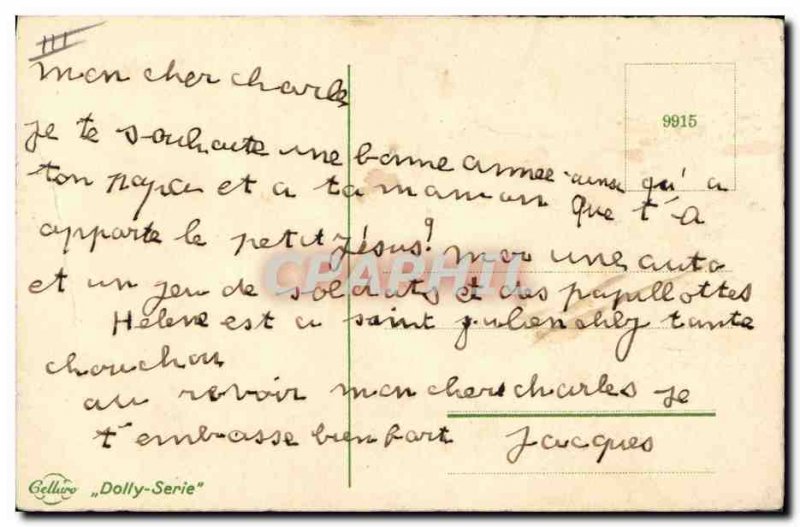 III
mon cher charles
9915
je te souhaite une bonne annee ainsi qu'a
ton papa et a ta maman que t'-a
apporte le petit jésus? moi une auto
CPAPHIL
et un jeu de soldats et des papillottes
Helene est a saint julien chez tante
chouchou
au revoir mon cher charles je
t'embrasse bien fort Jacques
Cellaro „Dolly-Serie"